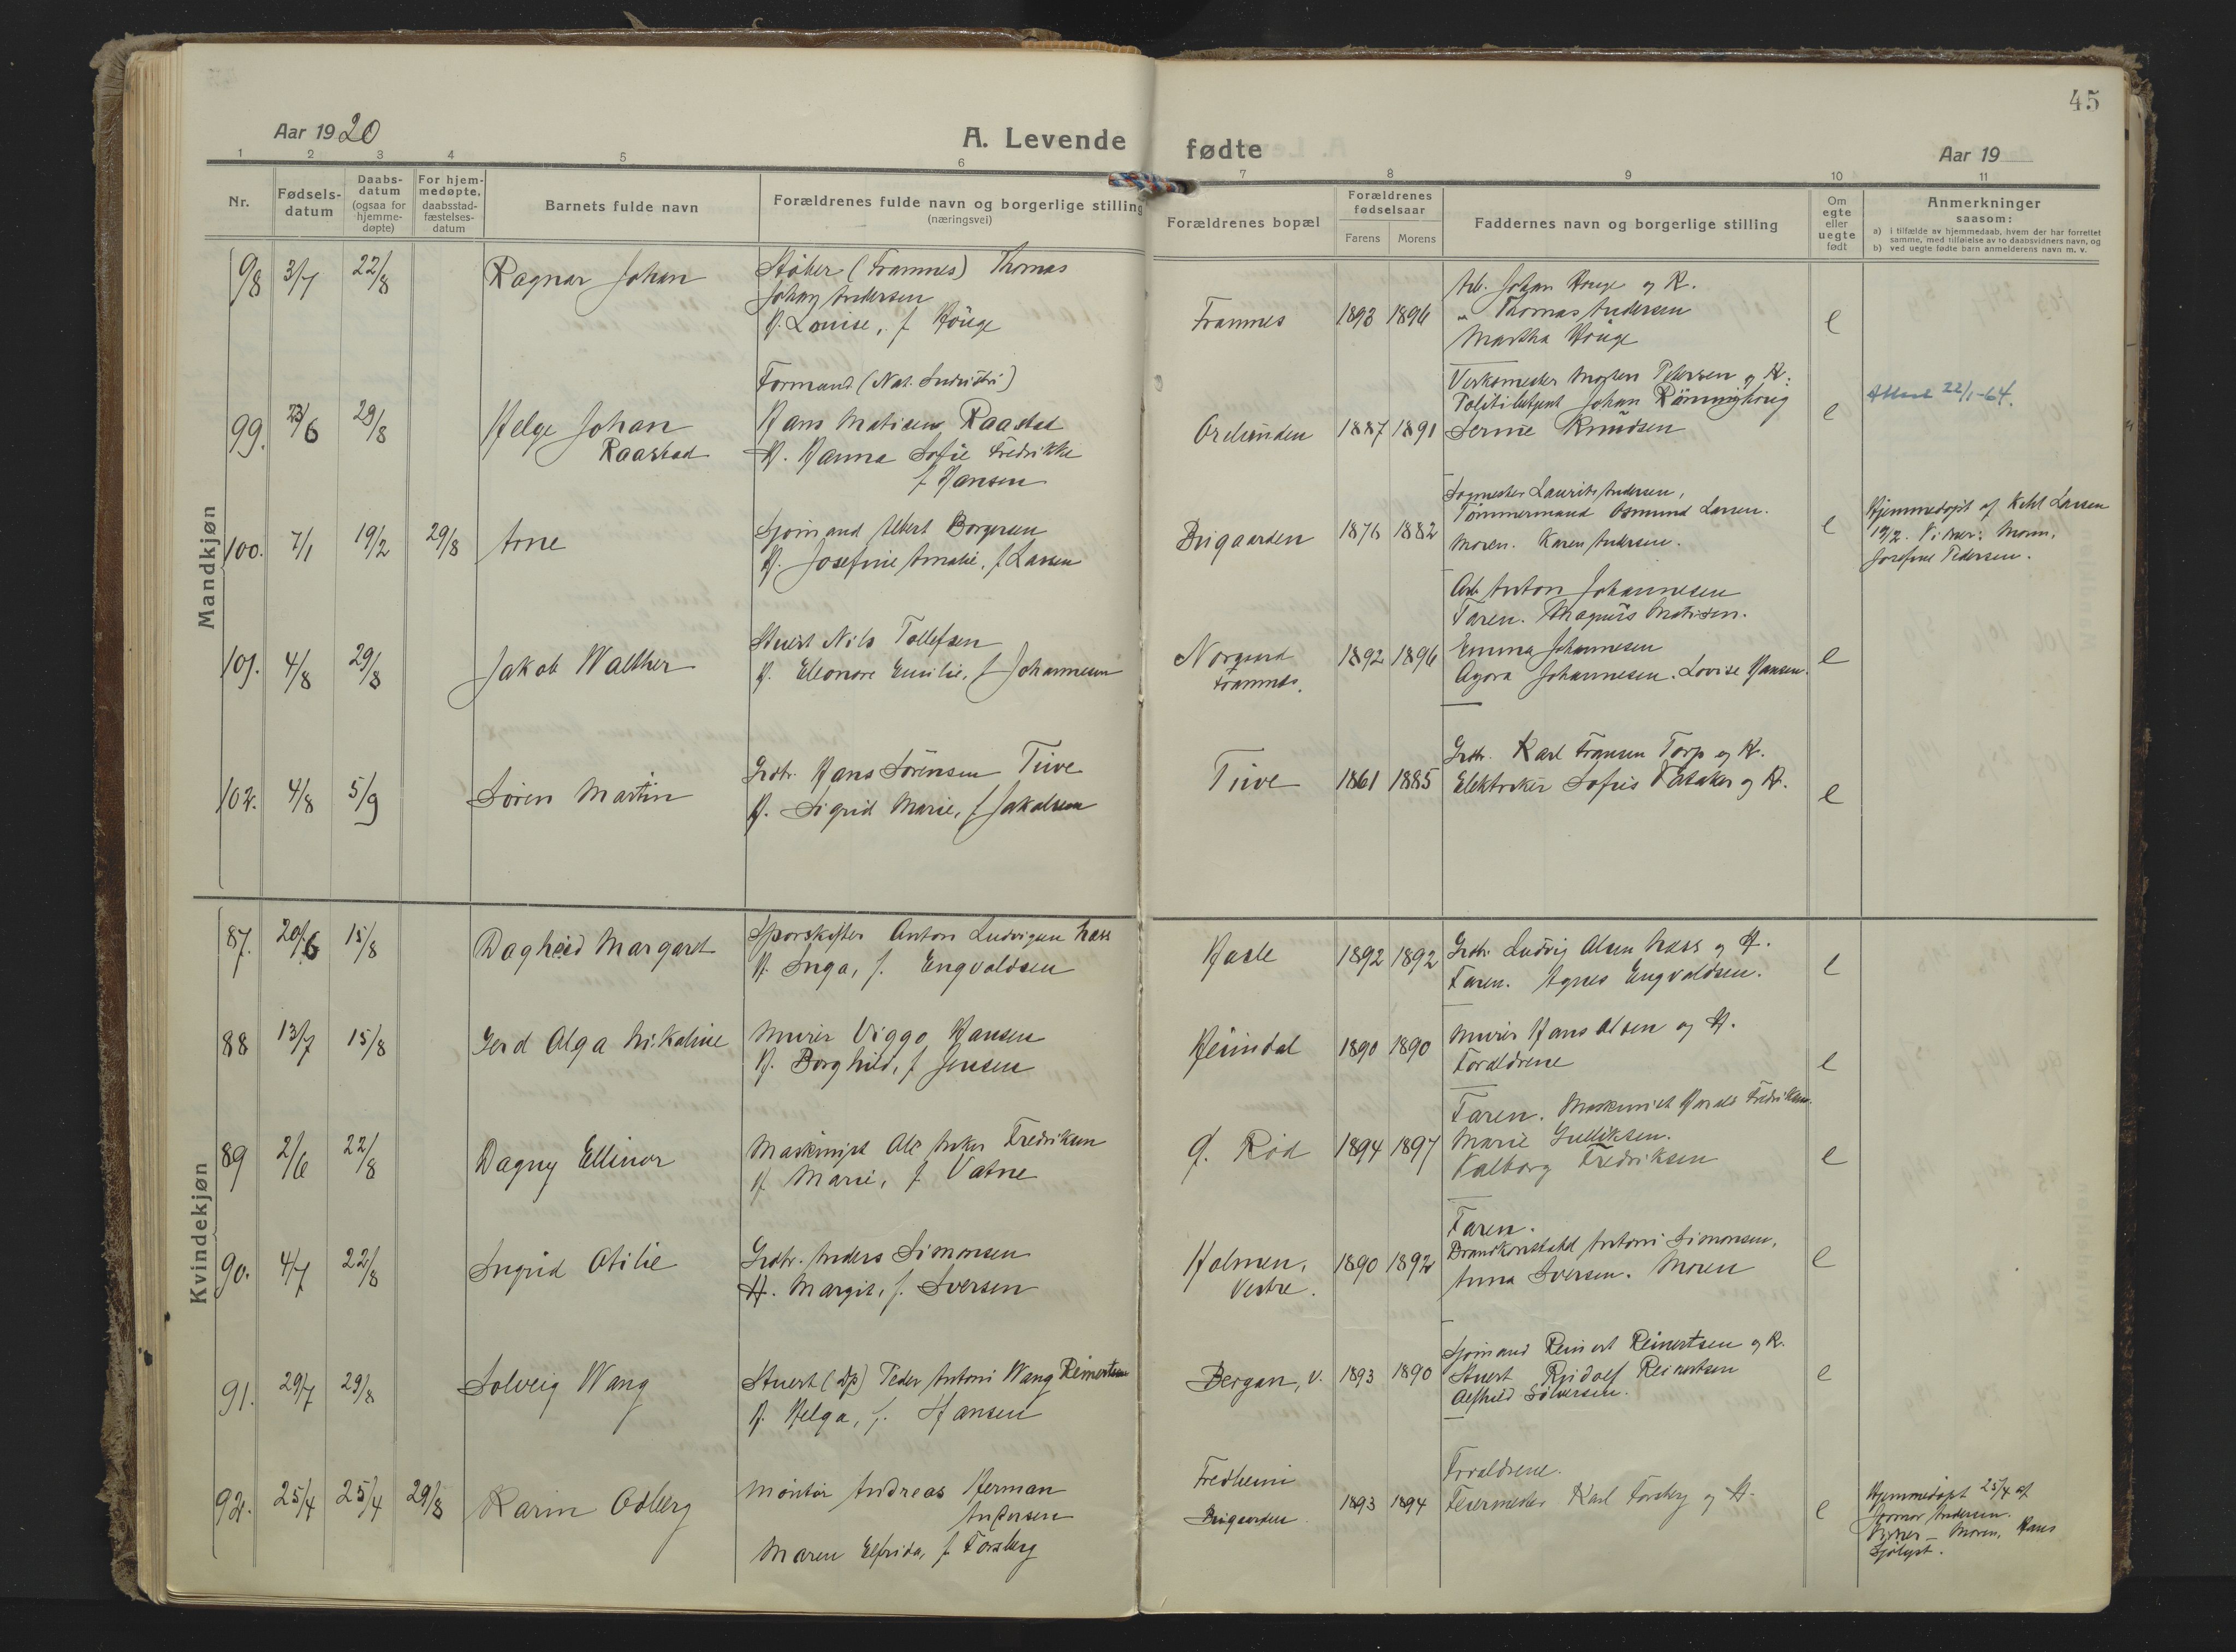 45
Aar 1920
A. Levende fødte
Aar 19
1 2 3 4 5 6 7 8 9 10 11
Nr.
Fødsels-
datum
Daabs-
datum
(ogsaa for
hjemme-
døpte)
For hjem-
medøpte,
daabsstad-
fæstelses-
datum
Barnets fulde navn
Forældrenes fulde navn og borgerlige stilling
(næringsvei)
Forældrenes bopæl
Forældrenes
fødselsaar
Farens Morens
Faddernes navn og borgerlige stilling
Om
egte
eller
uegte
født
Anmerkninger
saasom:
a) i tilfælde av hjemmedaab, hvem der har forrettet
samme, med tilføielse av to daabsvidners navn, og
b) ved uegte fødte barn anmelderens navn m. v.
Mandkjøn
98 3/7 22/8 Ragnar Johan
Støber (Framnes) Thomas
Johan Andersen
H. Louise, f. Houge
Framnes 1893 1896
Arb. Johan Houge og H.
" Thomas Andersen
Martha Houge
e
99. 23/6 29/8 Helge Johan
Raastad
Formand (Nat. Industri)
Hans Matisen Raastad
H. Hanna Sofie Fredrikke
f. Hansen
Orelunden 1887 1891
Verksmester Morten Pedersen og H.
Politibetjent Johan Rönninghoug
Knudsen
e
Attest 22/1-64.
100. 7/1 19/2 29/8 Arne
Sjömand Albert Borgersen
H. Josefine Amalie, f. Larsen
Brigaarden 1876 1882
Laurits Andersen,
Tömmermand Osmund Larsen.
Moren. Karen Andersen.
e
Hjemmedøpt af Larsen
19/2. Vidner: Moren,
Josefine Pedersen.
101. 4/8 29/8 Jakob Walther
Stuert Nils Tollefsen
H. Eleonore Emilie, f. Johannesen
Norgaard
Framnes. 1892 1896
Arb. Anton Johannesen
Faren. Magnus Matisen.
Emma Johannesen
Agora Johannesen. Lovise Hansen.
e
102. 4/8 5/9 Sören Martin
Grdbr. Hans Sörensen Tuve
H. Sigrid Marie, f. Jakobsen
Tuve 1861 1885
Grdbr. Karl Fransen Torp og H.
Elektriker Sofus og H.
e
Kvindekjøn
87. 20/6 15/8 Dagheid Margaret
Sporskifter Anton Ludvigsen Næss
H. Inga, f. Engvaldsen
Hasle 1892 1892
Grdbr. Ludvig Olsen Næss og H.
Faren. Agnes Engvaldsen.
e
88 13/7 15/8 Gerd Olga Nikoline
Murer Viggo Hansen
H. Borghild, f. Jensen
Heimdal 1890 1890
Murer Hans Olsen og H.
Forældrene
e
89 2/6 22/8 Dagny Ellinor
Maskinist Ole Fredriksen
H. Marie, f. Vatne
G. Röd 1894 1897
Faren. Maskinist Harald Fredriksen.
Marie Gulliksen.
Valborg Fredriksen
e
90. 4/7 22/8 Ingrid Otilie
Grdbr. Anders Simonsen
H. Margit, f. Iversen
Holmen,
Vestre. 1890 1892
Faren.
Brandkonstabel Antoni Simonsen,
Anna Iversen. Moren
e
91. 29/7 29/8 Solveig Wang
Stuert (dp) Peder Antoni Wang Reinertsen
H. Helga, f. Hansen
Bergan, V. 1893 1890
Sjömand Reinert Reinertsen og H.
Stuert Rudolf Reinertsen
Alfhild Sölversen.
e
92. 25/4 25/4 29/8 Karin Odberg
Montör Andreas Herman
Andersen
Maren Elfrida, f. Forsberg
Fredheim
Brigaarden 1893 1894
Forældrene.
Feiermester Karl Forsberg og H.
e
Hjemmedøpt 25/4 af
Andersen.
Vidner – Moren, Hans
Sjölyst.